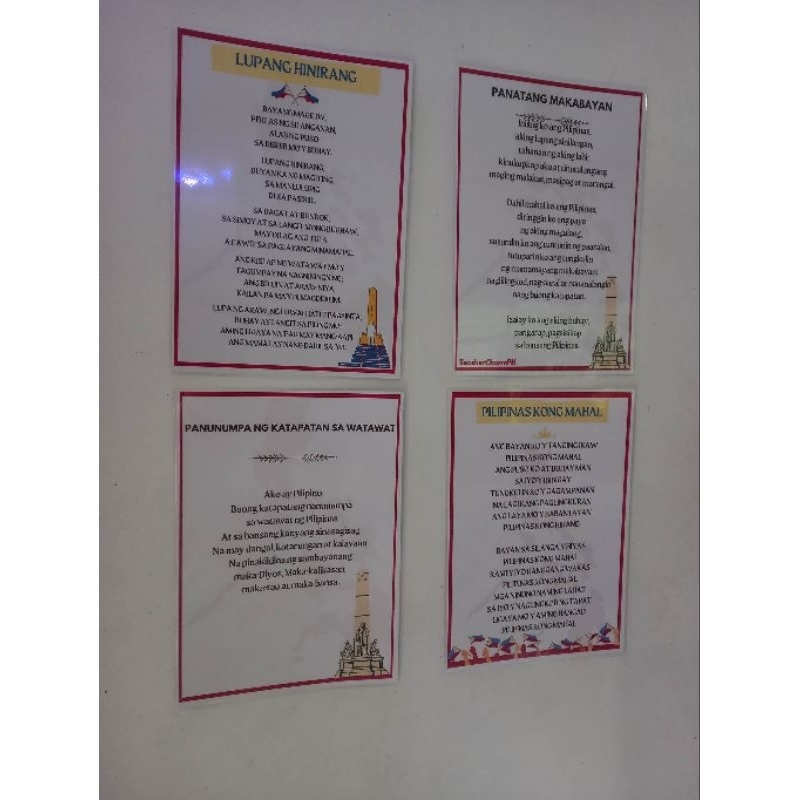 LUPANG HINIRANG
BAYANG MAGILIW,
PERLAS NG SILANGANAN,
ALAB NG PUSO
SA DIBDIB MO'Y BUHAY.
LUPANG HINIRANG,
DUYAN KA NG MAGITING,
SA MANLULUPIG
DI KA PASISIIL.
SA DAGAT AT BUNDOK,
SA SIMOY AT SA LANGIT MONG BUGHAW,
MAY DILAG ANG TULA
AT AWIT SA PAGLAYANG MINAMAHAL.
ANG KISLAP NG WATAWAT MO'Y
TAGUMPAY NA NAGNININGNING;
ANG BITUIN AT ARAW NIYA
KAILAN PA MA'Y DI MAGDIDILIM.
LUPA NG ARAW, NG LUWALHATI'T PAGSINTA,
BUHAY AY LANGIT SA PILING MO;
AMING LIGAYA NA PAG MAY MANG-AAPI
ANG MAMATAY NANG DAHIL SA 'YO.
PANATANG MAKABAYAN
Iniibig ko ang Pilipinas,
aking lupang sinilangan,
tahanan ng aking lahi;
kinukupkop ako at tinutulungang
maging malakas, masipag at marangal.
Dahil mahal ko ang Pilipinas,
diringgin ko ang payo
ng aking magulang,
susundin ko ang tuntunin ng paaralan,
tutuparin ko ang tungkulin
ng mamamayang makabayan:
naglilingkod, nag-aaral at nananalangin
nang buong katapatan.
Iaalay ko ang aking buhay,
pangarap, pagsisikap
sa bansang Pilipinas.
TeacherCharmPH
PANUNUMPA NG KATAPATAN SA WATAWAT
Ako ay Pilipino
Buong katapatang nanunumpa
sa watawat ng Pilipinas
At sa bansang kanyang sinasagisag
Na may dangal, katarungan at kalayaan
Na pinakikilos ng sambayanang
maka-Diyos, Maka-kalikasan
makatao at maka-bansa.
PILIPINAS KONG MAHAL
ANG BAYAN KO'Y TANGING IKAW
PILIPINAS KONG MAHAL
ANG PUSO KO AT BUHAY MAN
SA IYO'Y IBIBIGAY
TUNGKULIN KO'Y GAGAMPANAN
NA LAGI KANG PAGLINGKURAN
ANG LAYA MO'Y BABANTAYAN
PILIPINAS KONG HIRANG
BAYAN SA SILANGA'Y HIYAS
PILIPINAS KONG MAHAL
KAMI'Y IYO HANGGANG WAKAS
PILIPINAS KONG MAHAL
MGA NINUNO NAMING LAHAT
SA IYO'Y NAGLINGKOD NG TAPAT
LIGAYA MO'Y AMING HANGAD
PILIPINAS KONG MAHAL